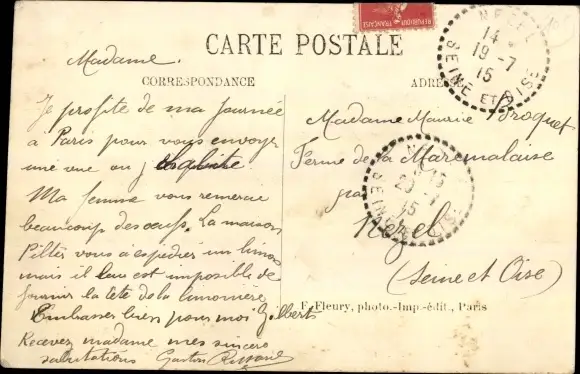 CARTE POSTALE
CORRESPONDANCE
Madame.
Je profite de ma journée
à Paris pour vous envoyer
une vue ou j
Ma femme vous remercie
beaucoup des oeufs. La maison
Pilter vous a expédier un limon
mais il leur est impossible de
fournir la tête de la limonière
Embrasser bien pour moi Gilbert
Recevez madame mes sincère
salutations Gaston
ADRESSE
Madame Maurice Broquet
Ferme de la Maremalaise
par
Nézel
(Seine et Oise)
F. Fleury, photo.-Imp.-édit., Paris
NEZEL
14
19 -7
15
SEINE ET OISE
15